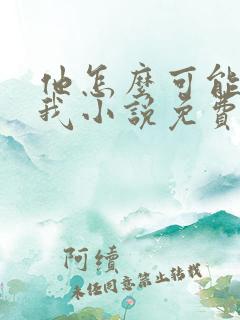 他怎麼可能
我小說免費
阿續
未任同意禁止转载